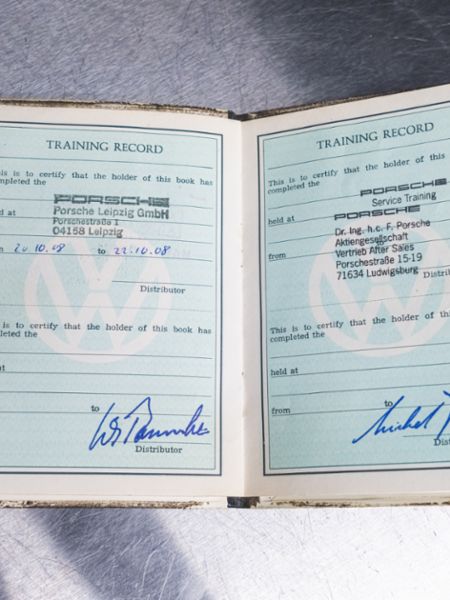 TRAINING RECORD
This is to certify that the holder of this book has
completed the
PORSCHE
Porsche Leipzig GmbH
Porschestraße 1
04158 Leipzig
d at
20.10.08 to 22.10.08
Distributor
is is to certify that the holder of this book has
completed the
d at
to
Distributor
TRAINING RECORD
This is to certify that the holder of this
completed the
PORSCHE
Service Training
held at
PORSCHE
Dr. Ing. h.c. F. Porsche
Aktiengesellschaft
from
Vertrieb After Sales
Porschestraße 15-19
71634 Ludwigsburg
Distributor
This is to certify that the holder of this
completed the
held at
from to
Michel
Di